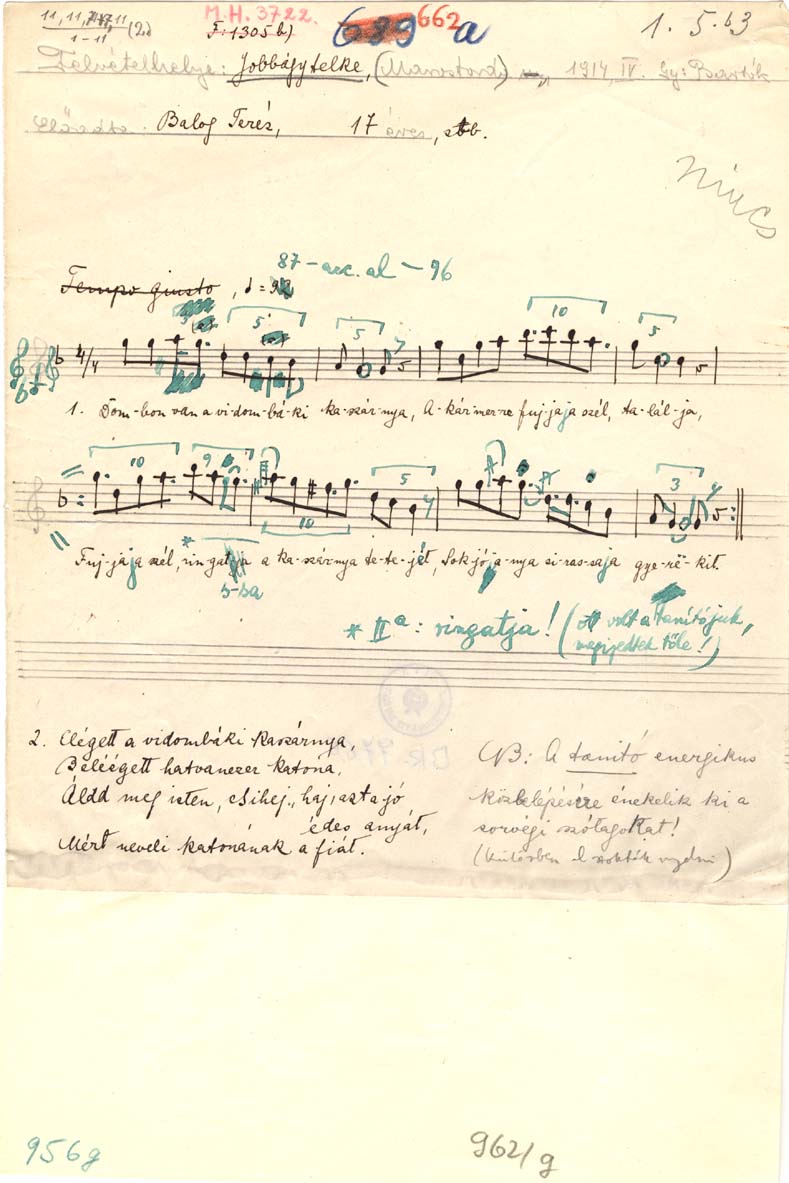 11, 11, 11 (2)
1-11
M.H. 3722.
F. 1305 b)
662
a
1. 5. 63
Felvétel helye: Jobbágytelke, (Marostorda) 1914, IV. Gy: Bartók
Előadta Balog Teréz, 17 éves, stb.
nincs
87 – acc. al – 96
Tempo giusto, ♩ = 92
5 5 10 5
4/4
1. Dom-bon van a vi-dom-bá-ki ka-szár-nya, A-kár-mer-re fuj-ja ja szél, ta-lál-ja,
10 9 5 3
10
Fuj-ja ja szél, *ringatja a ka-szár-nya te-te-jét, Sok jó a-nya si-ras-sa ja gye-rë-kit.
s-sa
* IIa: ringatja! (ott volt a tanítójuk,
megijedtek tőle!)
2. Elégett a vidombáki kaszárnya,
Beléégett hatvanezer katona,
Áldd meg isten, csihej, haj, azt a jó
édes anyját,
Mért neveli katonának a fiát.
NB: A tanító energikus
közbelépésére éneklik ki a
sorvégi szótagokat!
956g
962/g